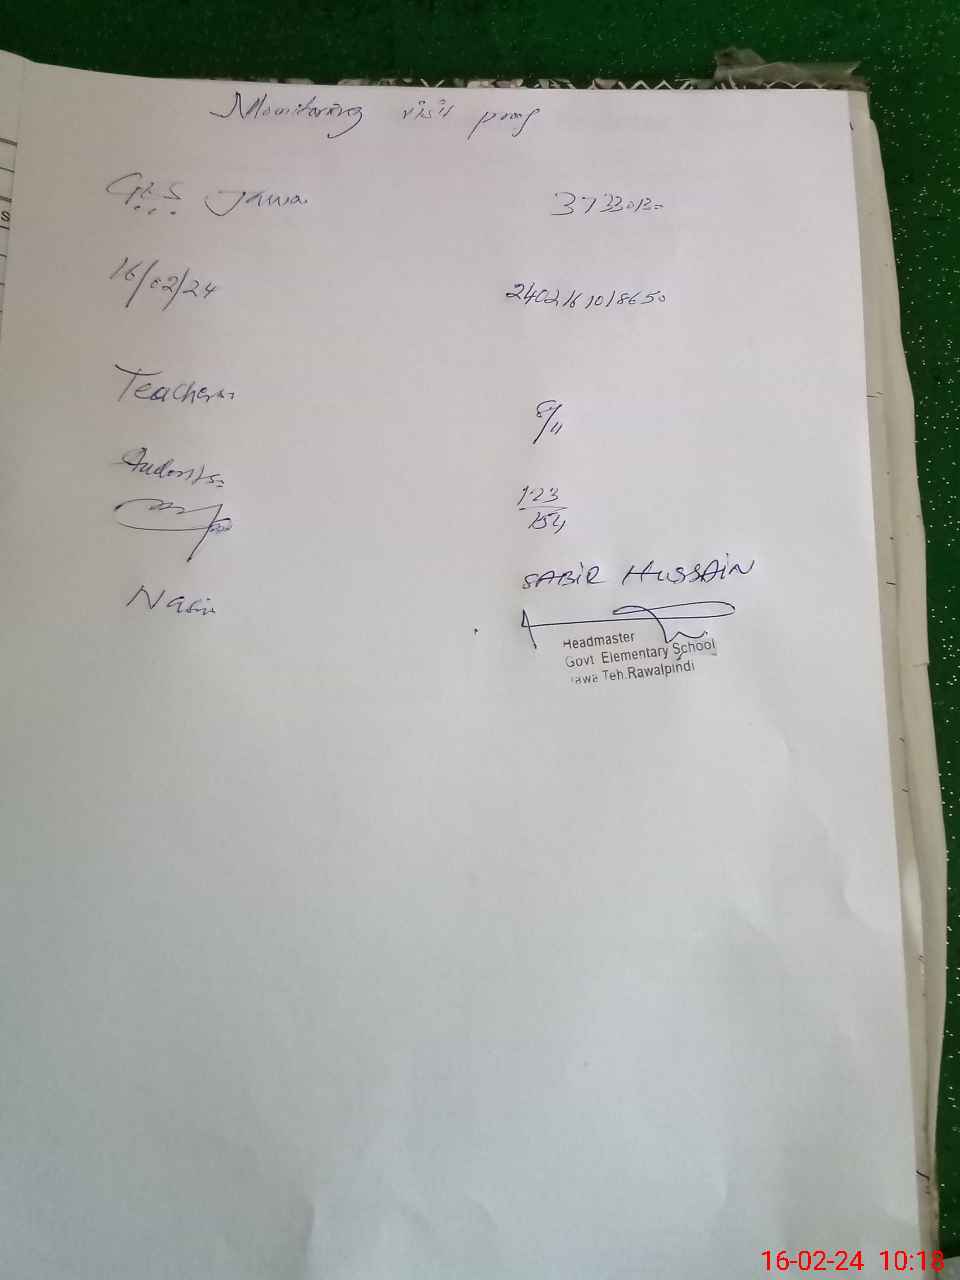 Monitoring visit proof
GES Jawa 37330130
16/02/24 2402161018650
Teachers 8/11
Students 123
154
SABIR HUSSAIN
Nasir
Headmaster
Govt Elementary School
Jawa Teh.Rawalpindi
16-02-24 10:18